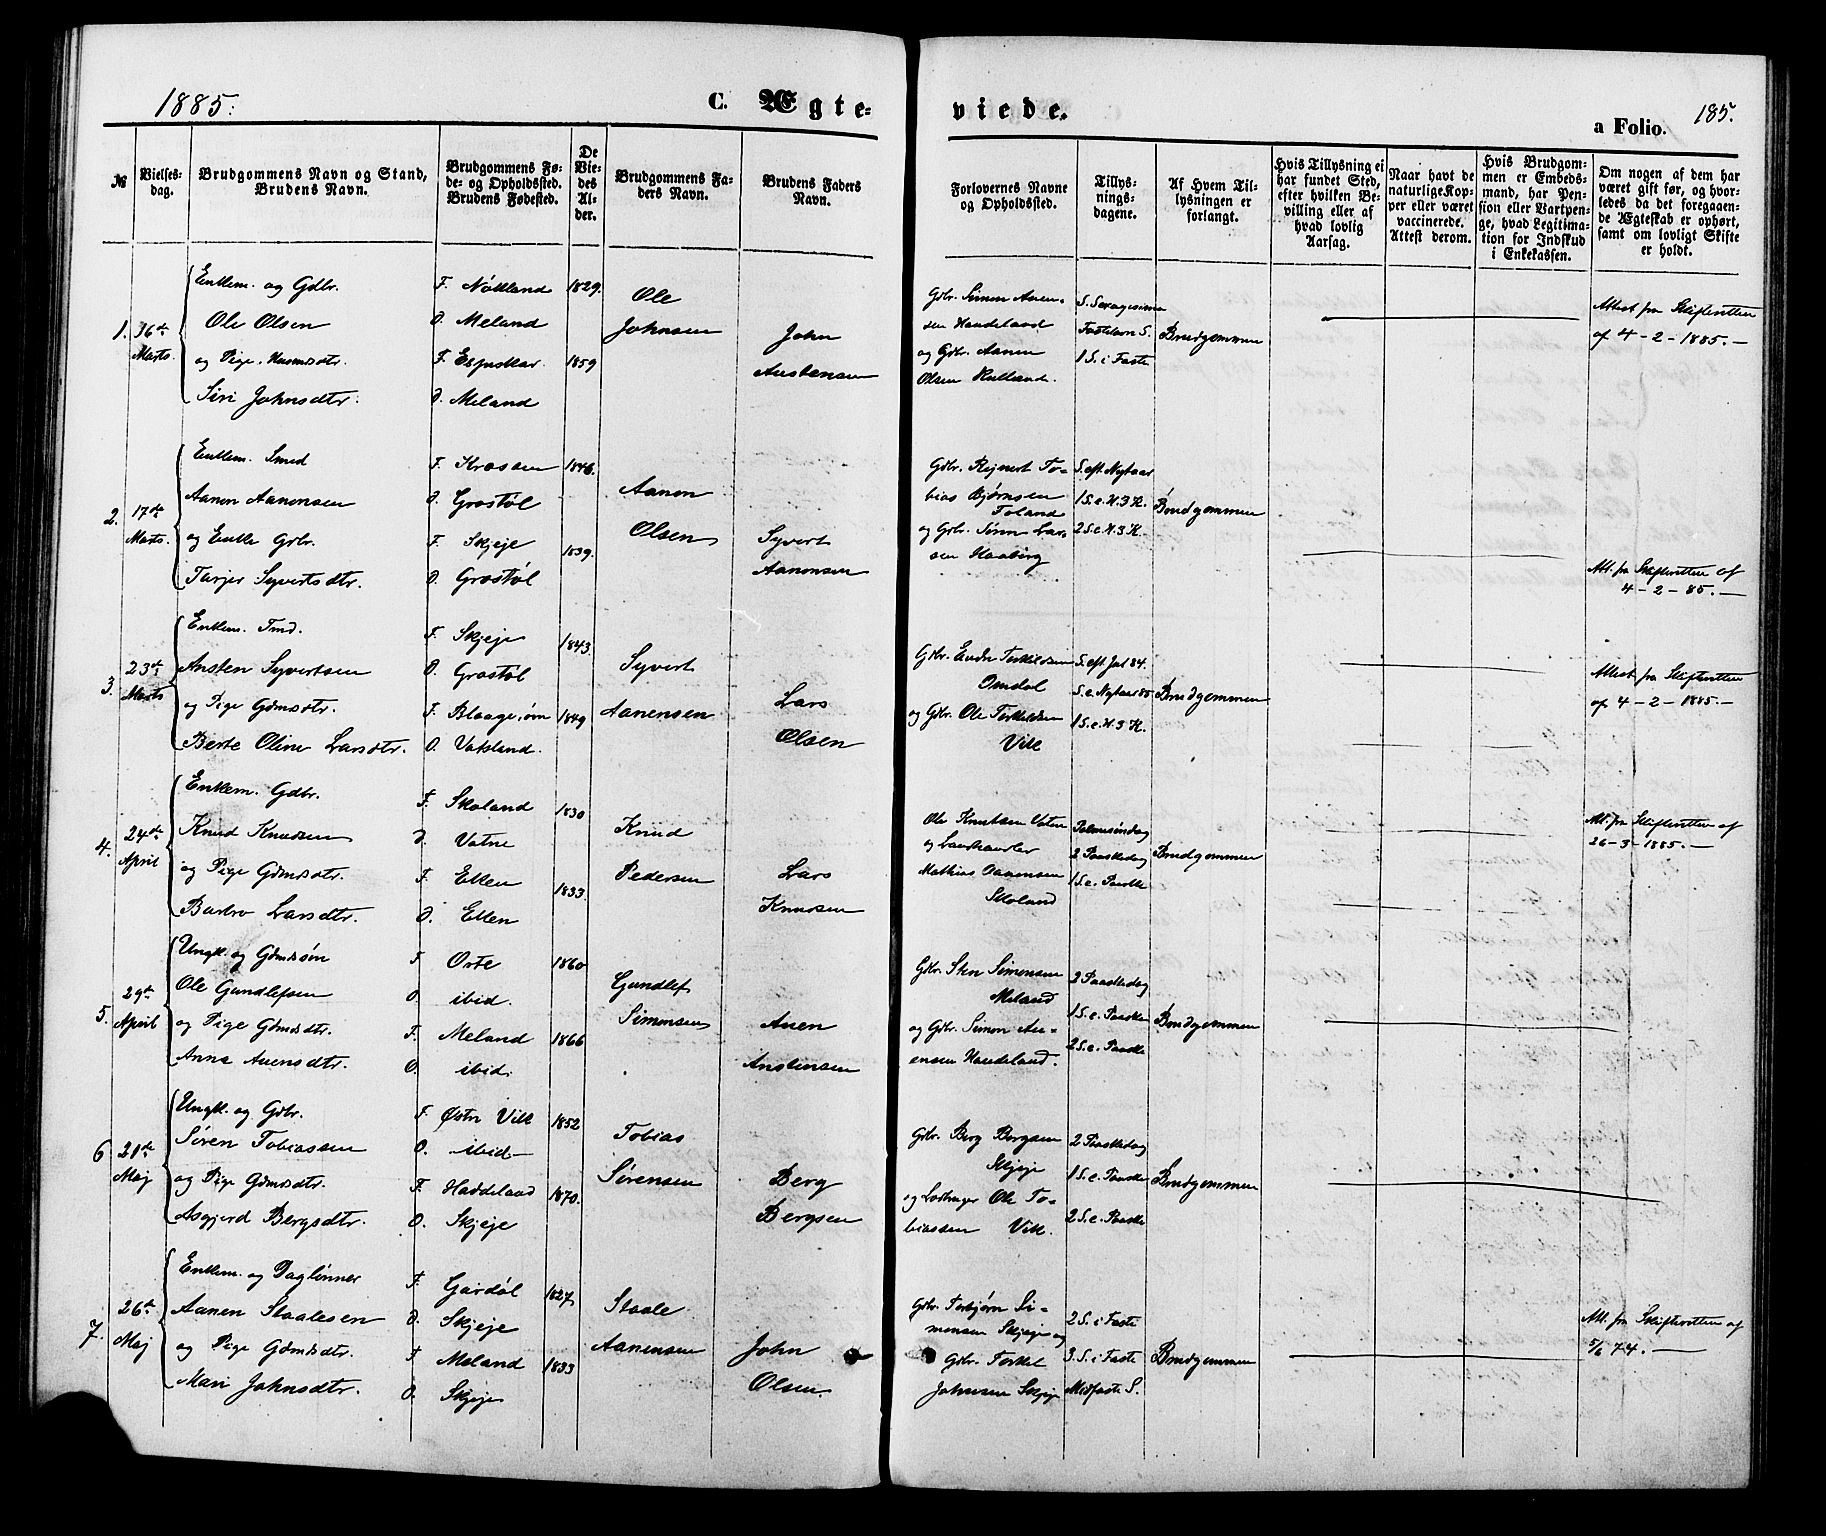 1885.
C. Ægte-
viede.
185.
a Folio.
№
Vielses-
dag.
Brudgommens Navn og Stand,
Brudens Navn.
Brudgommens Fø-
de- og Opholdssted.
Brudens Fødested.
De
Vie-
des
Al-
der.
Brudgommens Fa-
ders Navn.
Brudens Faders
Navn.
Forlovernes Navne
og Opholdssted.
Tillys-
nings-
dagene.
Af Hvem Til-
lysningen er
forlangt.
Hvis Tillysning ei
har fundet Sted,
efter hvilken Be-
villing eller af
hvad lovlig
Aarsag.
Naar havt de
naturlige Kop-
per eller været
vaccinerede.
Attest derom.
Hvis Brudgom-
men er Embeds-
mand, har Pen-
sion eller Vartpen-
ge, hvad Legitima-
tion for Indskud
i Enkekassen.
Om nogen af dem har
været gift før, og hvor-
ledes da det foregaaen-
de Ægteskab er ophørt,
samt om lovligt Skifte
er holdt.
1.
Marts.
Enkem. og Gdbr.
Ole Olsen
og Pige
Siri Johnsdtr.
F. Nökland
O. Meland
F. Espestkar
O. Meland
1829.
1859
Ole
Johnsen
John
Anstensen
Gdbr. Simon Auen-
sen Haudeland
og Gdbr. Aanen
Olsen
S. Sexagesima
Fastelavn S.
1 S. i Faste
Brudgommen
Attest fra Skifteretten
af 4-2-1885.-
2.
17de
Marts.
Enkem. Smed
Aanon Aanonsen
og Enke Gdbr.
Tarjer Syvertsdtr.
F.
O. Grostøl
F. Skjeje
O. Grostøl
1846.
1839.
Aanon
Olsen
Syvert
Aanonsen
Gdbr. Rejnert To-
bias Bjørnsen
Foland
og Gdbr. Sønn Lar-
sen Haaberg
S. eft. Nytaar
1 S. e. H. 3 K.
2 S. e. H. 3 K.
Brudgommen
Att. fra Skifteretten af
4-2-85.-
3.
23de
Marts
Enkem.
Ansten Syvertsen
og Pige Gdmdsdtr.
Berte Oline Larsdtr.
F. Skjeje
O. Grostøl
F.
O. Vatsland.
1843.
1849
Syvert
Aanensen
Lars
Olsen
Gdbr. Endr Terkildsen
Omdal
og Gdbr. Ole Terkildsen
Vill
S. eft Jul 84.
S. e. Nytaar 85
1 S. e. H. 3 K.
Brudgommen
Attest fra Skifteretten
af 4-2-1885.-
4.
24de
April
Enkem. Gdbr.
Knud Knudsen
og Pige Gdmdsdtr.
Barbro Larsdtr.
F. Skoland
O. Vatne
F. Ellen
O. Ellen
1830
1833.
Knud
Pedersen
Lars
Knudsen
Ole Knutsen Vatne
og Landhandler
Mathias Aanensen
Skoland
Palmesøndag
2 Paaskedag
1 S. e. Paaske
Brudgommen
Att. fra Skifteretten af
26-3-1885.-
5.
29de
April
Ungk. og Gdmdssøn
Ole Gundlefsen
og Pige Gdmdsdtr.
Anna Auensdtr.
F. Orte
O. ibid.
F. Meland
O. ibid.
1860
1866
Gundlef
Simonsen
Auen
Anstensen
Gdbr. Sten Simonsen
Meland
og Gdbr. Simon Au-
ensen Haudeland.
2 Paaskedag
1 S. e. Paaske
2 S. e. Paaske
Brudgommen
6
21de
Maj
Ungk. og Gdbr.
Søren Tobiassen
og Pige Gdmdsdtr.
Asgjerd Bergsdtr.
F. Østre Vill
O. ibid
F. Haddeland
O. Skjeje
1852
1870.
Tobias
Sørensen
Berg
Bergsen
Gdbr. Berg Bergsen
Skjeje
og Ole To-
biassen Vill.
2 Paaskedag
1 S. e. Paaske
2 S. e. Paaske
Brudgommen
7.
26de
Maj
Enkem. og Daglønner
Aanen Staalesen
og Pige Gdmdsdtr.
Mari Johnsdtr.
F. Gardöl
O. Skjeje
F. Meland
O. Skjeje
1827
1833
Staale
Aanensen
John
Olsen
Gdbr. Torbjørn Si-
monsen Skjeje og
Gdbr. Torkel
Johnsen Skjeje
2 S. i Faste
3. S. i Faste
Midfaste S.
Brudgommen
Att. fra Skifteretten af
5/6 74.-